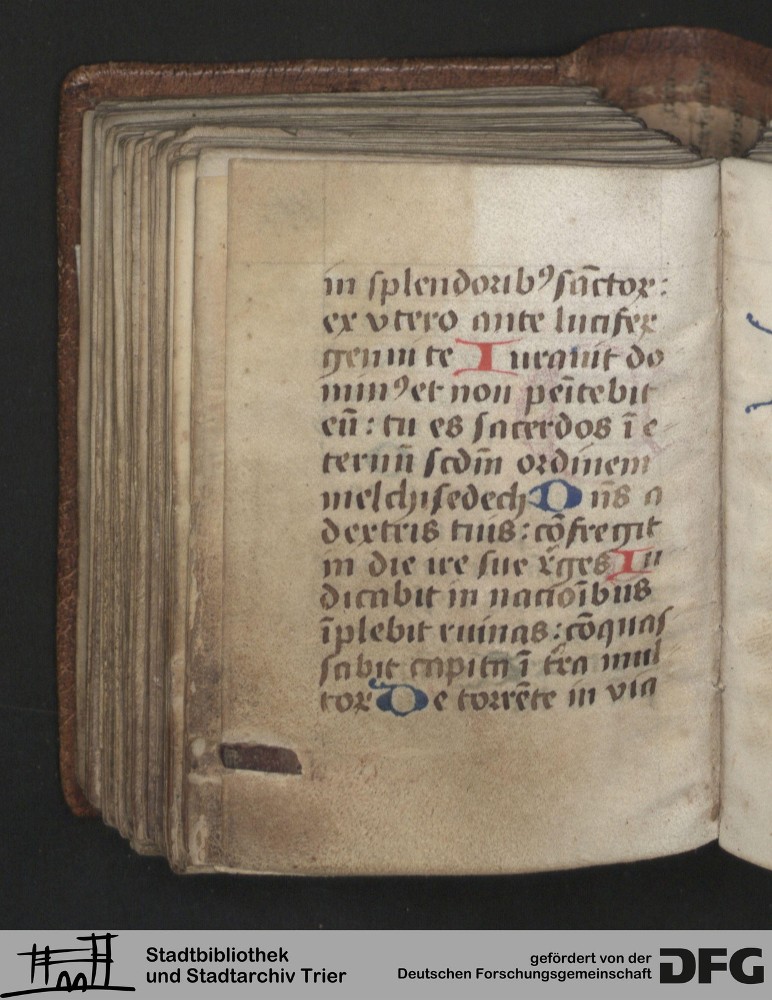 in splendorib⁹ sāctoꝝ:
ex vtero ante lucifeꝝ
genui te Iurauit do
min⁹ et non pēitebit
eū: tu es sacerdos ī e
ternū scdm̄ ordinem
melchisedech Dn̄s a
dextris tuis: cōfregit
in die ire sue r̄ges Iu
dicabit in nacioībus
īplebit ruinas: cōquas
sabit capita ī tr̄a mul
toꝝ De torrēte in via
Stadtbibliothek
und Stadtarchiv Trier
gefördert von der
Deutschen Forschungsgemeinschaft
DFG